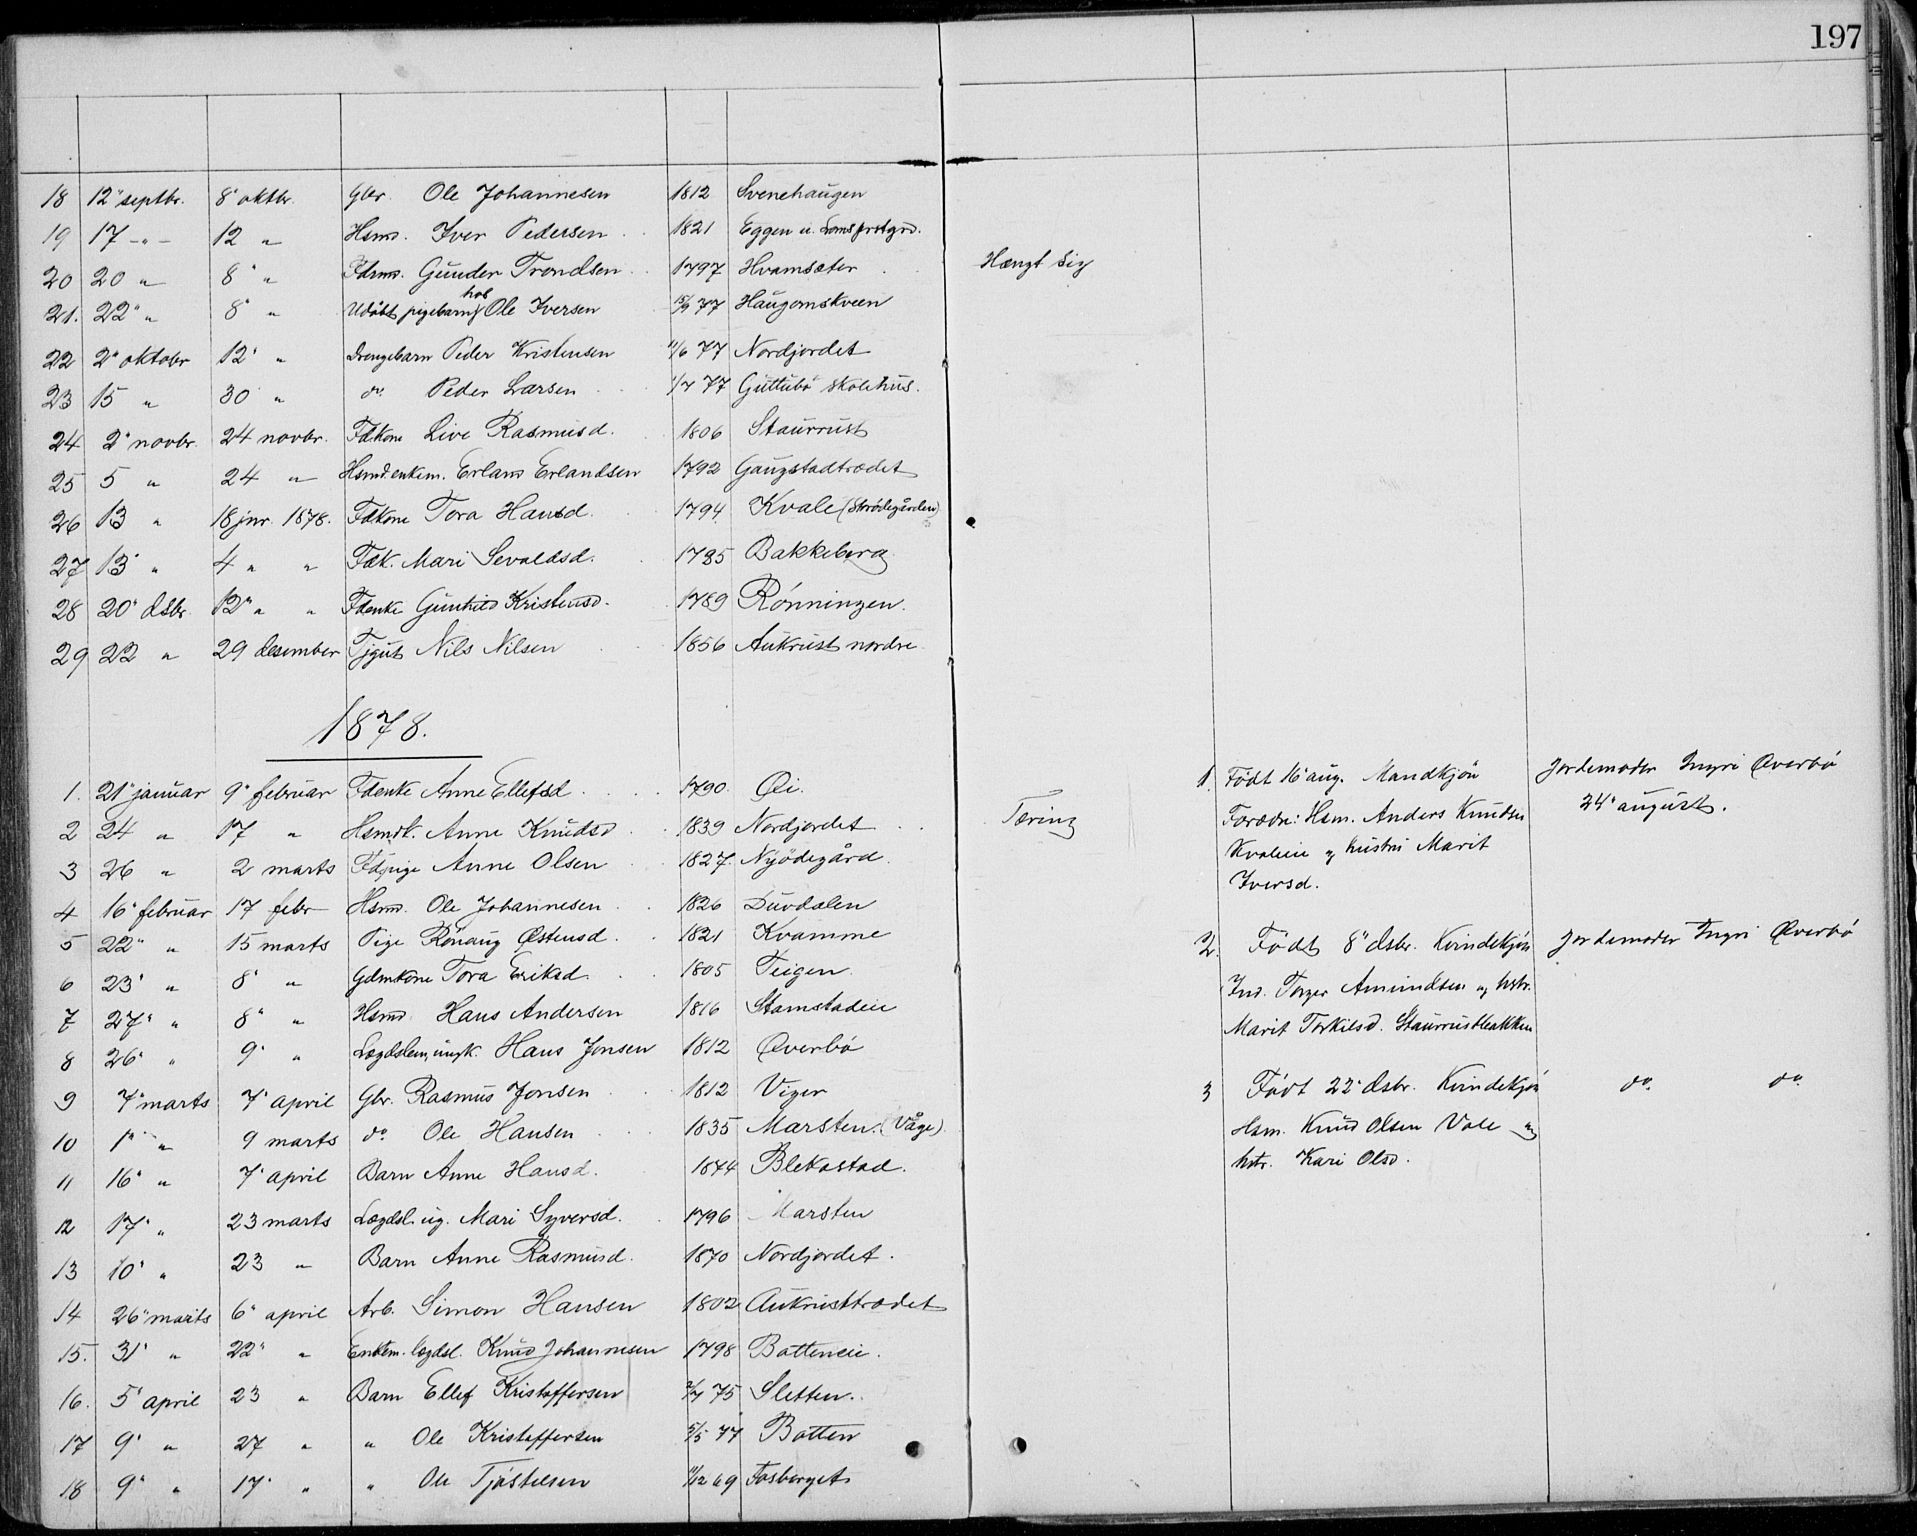 197
18 12" septbr. 8" oktbr. Gbr. Ole Johannesen 1812 Svenehaugen
19 17 -"- 12 " Hsmd. Iver Pedersen 1821 Eggen u. Loms prstgrd.
20 20 " 8" " Fdrmd. Gunder Trondsen 1797 Hvamsæter Hængt sig
21. 22" " 8" " Udøbt pigebarn hos Ole Iversen 15/9 77 Haugomskveen
22 2" oktobr 12" " Drengebarn Peder Kristensen 11/6 77 Nordjordet
23 15 " 30 " do. Peder Larsen 1/7 77 Guttubø skolehus.
24 2" novbr. 24 novbr. Fdkone Live Rasmusd. 1806 Staurrust
25 5 " 24 " Hsmd.enkem. Erland Erlandsen 1792 Gaugstadtrædet
26 13 " 18 jnr. 1878. Fdkone Tora Hansd. 1794 Kvale (Strødegården)
27 13" " 4 " " Fdk. Mari Sevaldsd. 1785 Bakkeberg
28 20" dsbr. 12" " " Fdenke Gunhild Kristensd. 1789 Rønningen.
29 22 " 29 desember Tjgut Nils Nilsen 1856 Aukrust nordre
1878.
1. 21" januar 9" februar Fdenke Anne Ellefsd. 1790. Øi.
2 24 " 17 " Hsmdk. Anne Knudsd. 1839 Nordjordet Tæring
3 26 " 2 marts Fdpige Anne Olsen 1827. Nyødegård.
4 16" februar 17 febr Hsmd. Ole Johannesen 1826 Duvdalen
5 22" " 15 marts Pige Rønaug Østensd. 1821 Kvamme
6 23" " 8" " Gdmkone Tora Eriksd. 1805 Teigen.
7 27" " 8" " Hsmd. Hans Andersen 1816 Stamstadeie
8 26" " 9" " Lægdslem, ungk. Hans Jonsen 1812 Øverbø
9 7" marts 7" april Gbr. Rasmus Jonsen 1812 Viger
10 1" " 9 marts do Ole Hansen 1835 Marsten. (Våge).
11 16" " 7" april Barn Anne Hansd. 1874 Blekastad.
12 17" " 23 marts Lægdsl. ug. Mari Syversd. 1796 Marsten
13 10" " 23 " Barn Anne Rasmusd. 1870 Nordjordet.
14 26" marts 6" april Arb. Simon Hansen 1802 Aukrusttrædet
15. 31" " 22" " Enkem. lægdsl. Knud Johannesen 1798 Botteneie.
16. 5" april 23 " Barn Ellef Kristoffersen 2/7 75 Sletten.
17 9" " 27 " " Ole Kristoffersen 5/5 77 Botten
18 9" " 17" " " Ole Tjøstelsen 11/12 69 Fosberget
1. Født 16" aug. Mandkjøn Jordemoder Ingri Øverbø
Forædre: Hsm. Anders Knudsen 24" august.
Kvaleie og hustru Marit
Iversd.
2. Født 8" dsbr. Kvindekjøn Jordemoder Ingri Øverbø
Ind. Torger Amundsen og hstr.
Marit Torkilsd. Staurrustbakken
3 Født 22" dsbr. Kvindekjøn do. do.
Hsm. Knud Olsen Vole og
hstr. Kari Olsd.